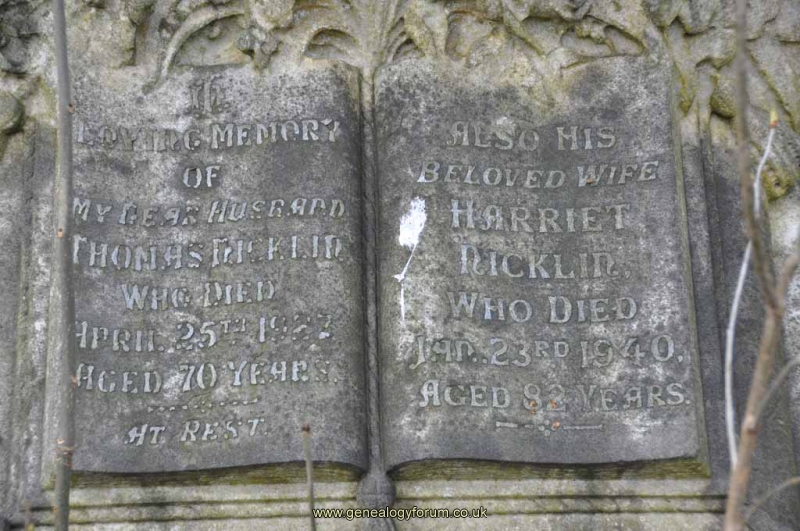 In
Loving Memory
of
my dear Husband
Thomas Nicklin
Who Died
April 25th 1927
Aged 70 Years.
At Rest.
Also His
Beloved Wife
Harriet
Nicklin,
Who Died
Jan. 23rd 1940.
Aged 82 Years.
www.genealogyforum.co.uk